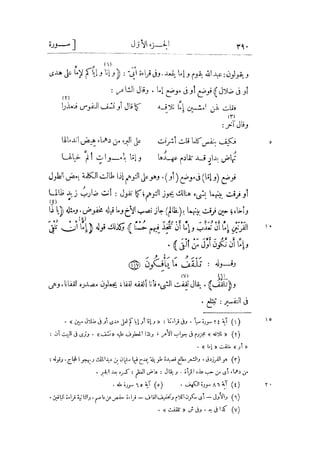 ٣٩٠ الجـــزء الأوّل [ ســـورة
ويقولون: عبد الله يقوم وإما يقعد. وفى قراءة أبىّ: (وإنا وإياكم لإمّا على هدى (١)
أو فى ضلال) فوضع أو فى موضع إما. وقال الشاعر:
فقلت لهن امشين إمّا نلاقه كما قال أو نشف النفوس فنعذرا (٢)
وقال آخر: (٣)
٥ فكيف بنفس كلما قلت أشرفت على البرء من دهماء هيض اندمالها
تهاض بدار قد تقادم عهدها وإما بأموات ألمّ خيالها
فوضع (وإمّا) فى موضع (أو). وهو على التوهم إذا طالت الكلمة بعض الطول
أو فرقت بينهما بشىء هنالك يجوز التوهم؛ كما تقول: أنت ضارب زيد ظالما
وأخاه؛ حين فرقت بينهما بـ(ظالم) جاز نصب الأخ وما قبله مخفوض. ومثله (يا ذا (٤)
١٠ القرنين إمّا أن تعذّب وإمّا أن تتّخذ فيهم حسنا) وكذلك قوله (إمّا أن تلقى (٥)
وإمّا أن نكون أوّل من ألقى).
وقـــوله: تلقف ما يأفكون (١١٧)
و(تلقّف). يقال لقفت الشىء فأنا ألقفه لقفا، يجعلون مصدره لقفانا. وهى (٦) (٧)
فى التفسير: تبتلع.
١٥ (١) آية ٢٤ سورة سبأ. وفى قراءتنا: «وإنا أو إياكم لعلى هدى أو فى ضلال مبين».
(٢) «نلاقه» مجزوم فى جواب الأمر، ولذا عطف عليه «نشف». وترى فى البيت أن:
«أو» خلفت «إما».
(٣) هو الفرزدق، والشعر مطلع قصيدة طويلة يمدح فيها سليمان بن عبد الملك ويهجو الحجاج. وقوله:
من دهماء أى من حب هذه المرأة. ويقال: هاض العظم: كسره بعد الجبر.
٢٠ (٤) آية ٨٦ سورة الكهف. (٥) آية ٦٥ سورة طه.
(٦) والأولى – أى سكون اللام وتخفيف القاف – قراءة حفص عن عاصم، والثانية قراءة الباقين.
(٧) كذا فى ج. وفى ش «تلقفت».